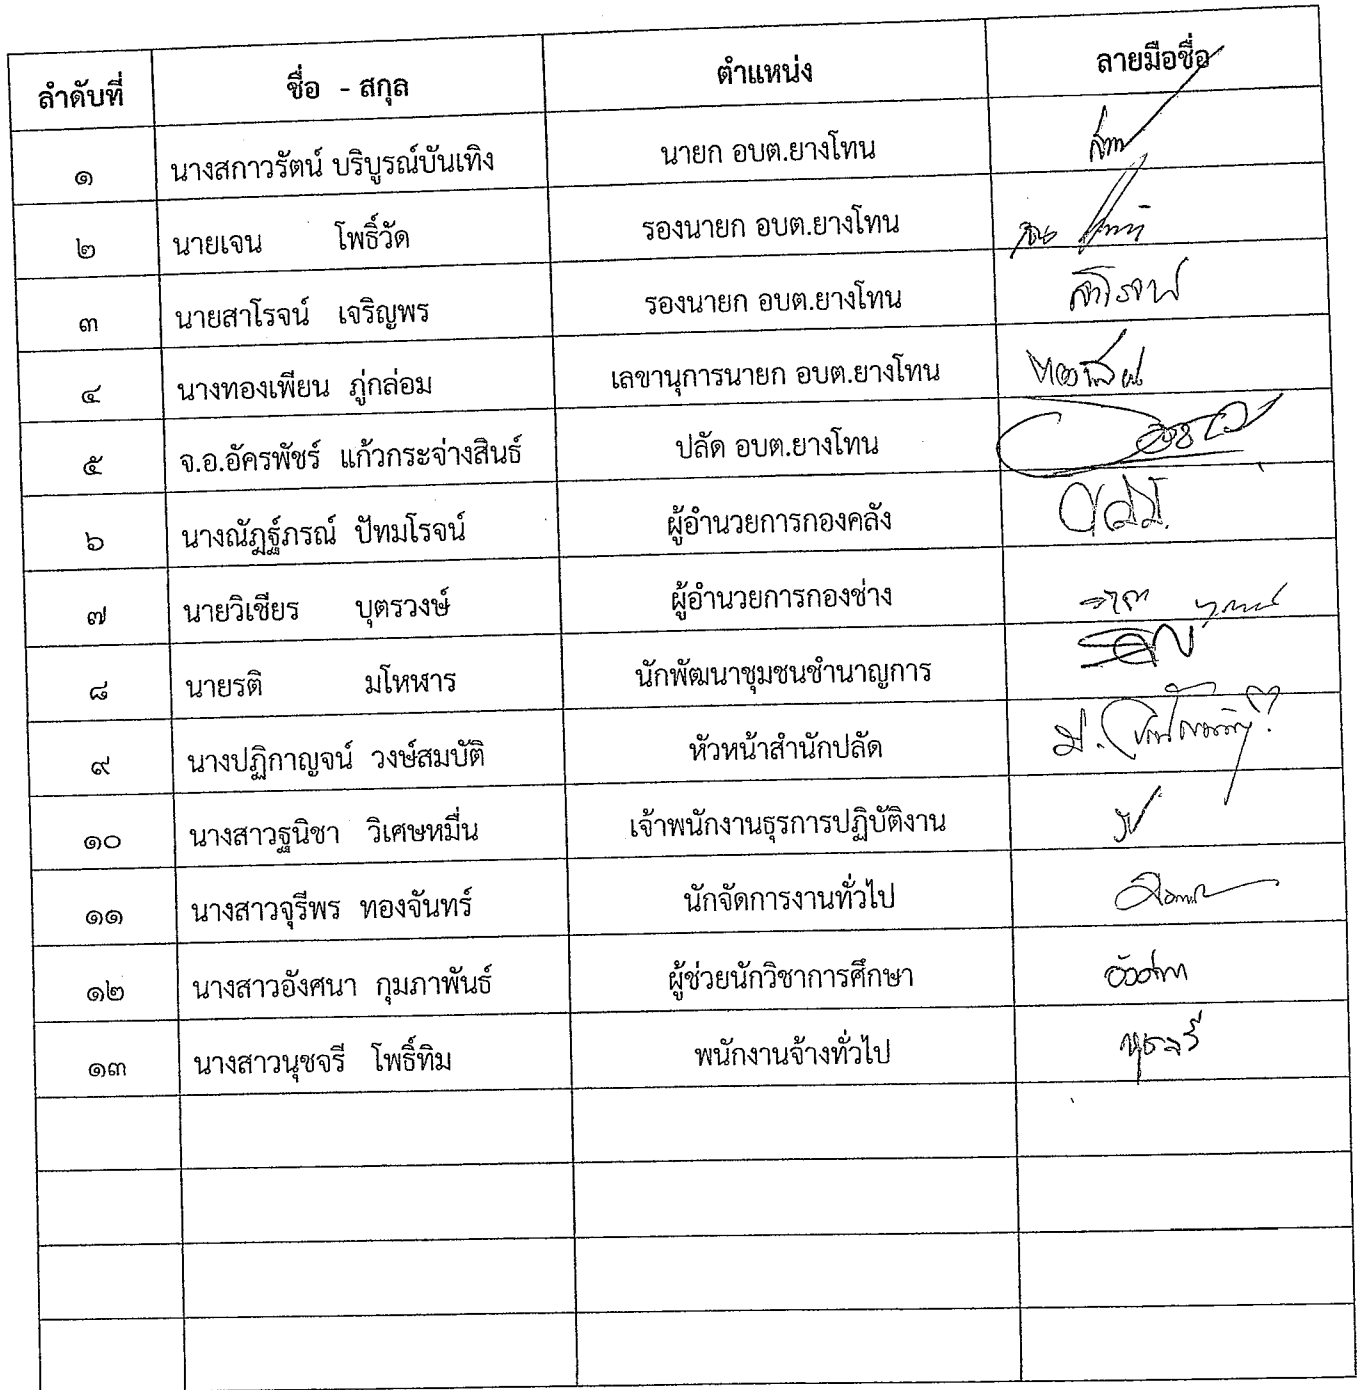 ลำดับที่ ชื่อ - สกุล ตำแหน่ง ลายมือชื่อ
๑ นางสกาวรัตน์ บริบูรณ์บันเทิง นายก อบต.ยางโทน
๒ นายเจน โพธิ์วัด รองนายก อบต.ยางโทน
๓ นายสาโรจน์ เจริญพร รองนายก อบต.ยางโทน สาโรจน์
๔ นางทองเพียน ภู่กล่อม เลขานุการนายก อบต.ยางโทน ทองเพียน
๕ จ.อ.อัครพัชร์ แก้วกระจ่างสินธ์ ปลัด อบต.ยางโทน
๖ นางณัฎฐ์ภรณ์ ปัทมโรจน์ ผู้อำนวยการกองคลัง
๗ นายวิเชียร บุตรวงษ์ ผู้อำนวยการกองช่าง
๘ นายรติ มโหฬาร นักพัฒนาชุมชนชำนาญการ
๙ นางปฏิกาญจน์ วงษ์สมบัติ หัวหน้าสำนักปลัด
๑๐ นางสาวฐนิชา วิเศษหมื่น เจ้าพนักงานธุรการปฏิบัติงาน
๑๑ นางสาวจุรีพร ทองจันทร์ นักจัดการงานทั่วไป
๑๒ นางสาวอังศนา กุมภาพันธ์ ผู้ช่วยนักวิชาการศึกษา อังศนา
๑๓ นางสาวนุชจรี โพธิ์ทิม พนักงานจ้างทั่วไป นุชจรี